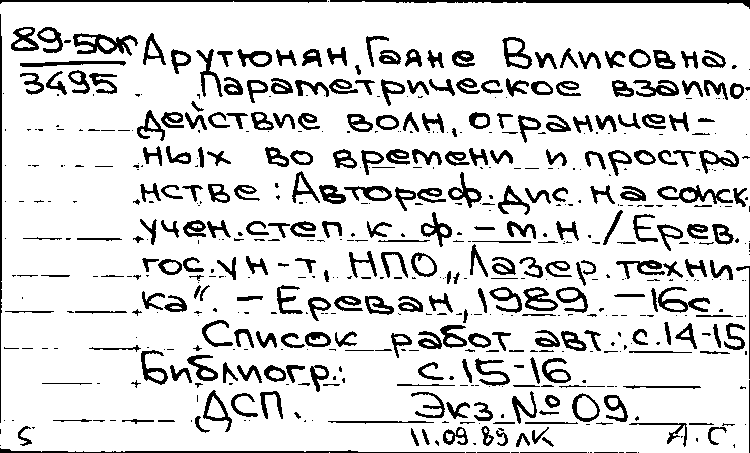 89-50к Арутюнян, Гаяне Виликовна.
3495 Параметрическое взаимо-
действие волн, ограничен-
ных во времени и простра-
нстве: Автореф. дис. на соиск.
учен. степ. к. ф.-м. н. / Ерев.
гос. ун-т, НПО „Лазер. техни-
ка“. - Ереван, 1989. - 16с.
Список работ авт.: с.14-15
Библиогр.: с.15-16.
ДСП. Экз. № 09.
S 11.09.89 лк А.С.